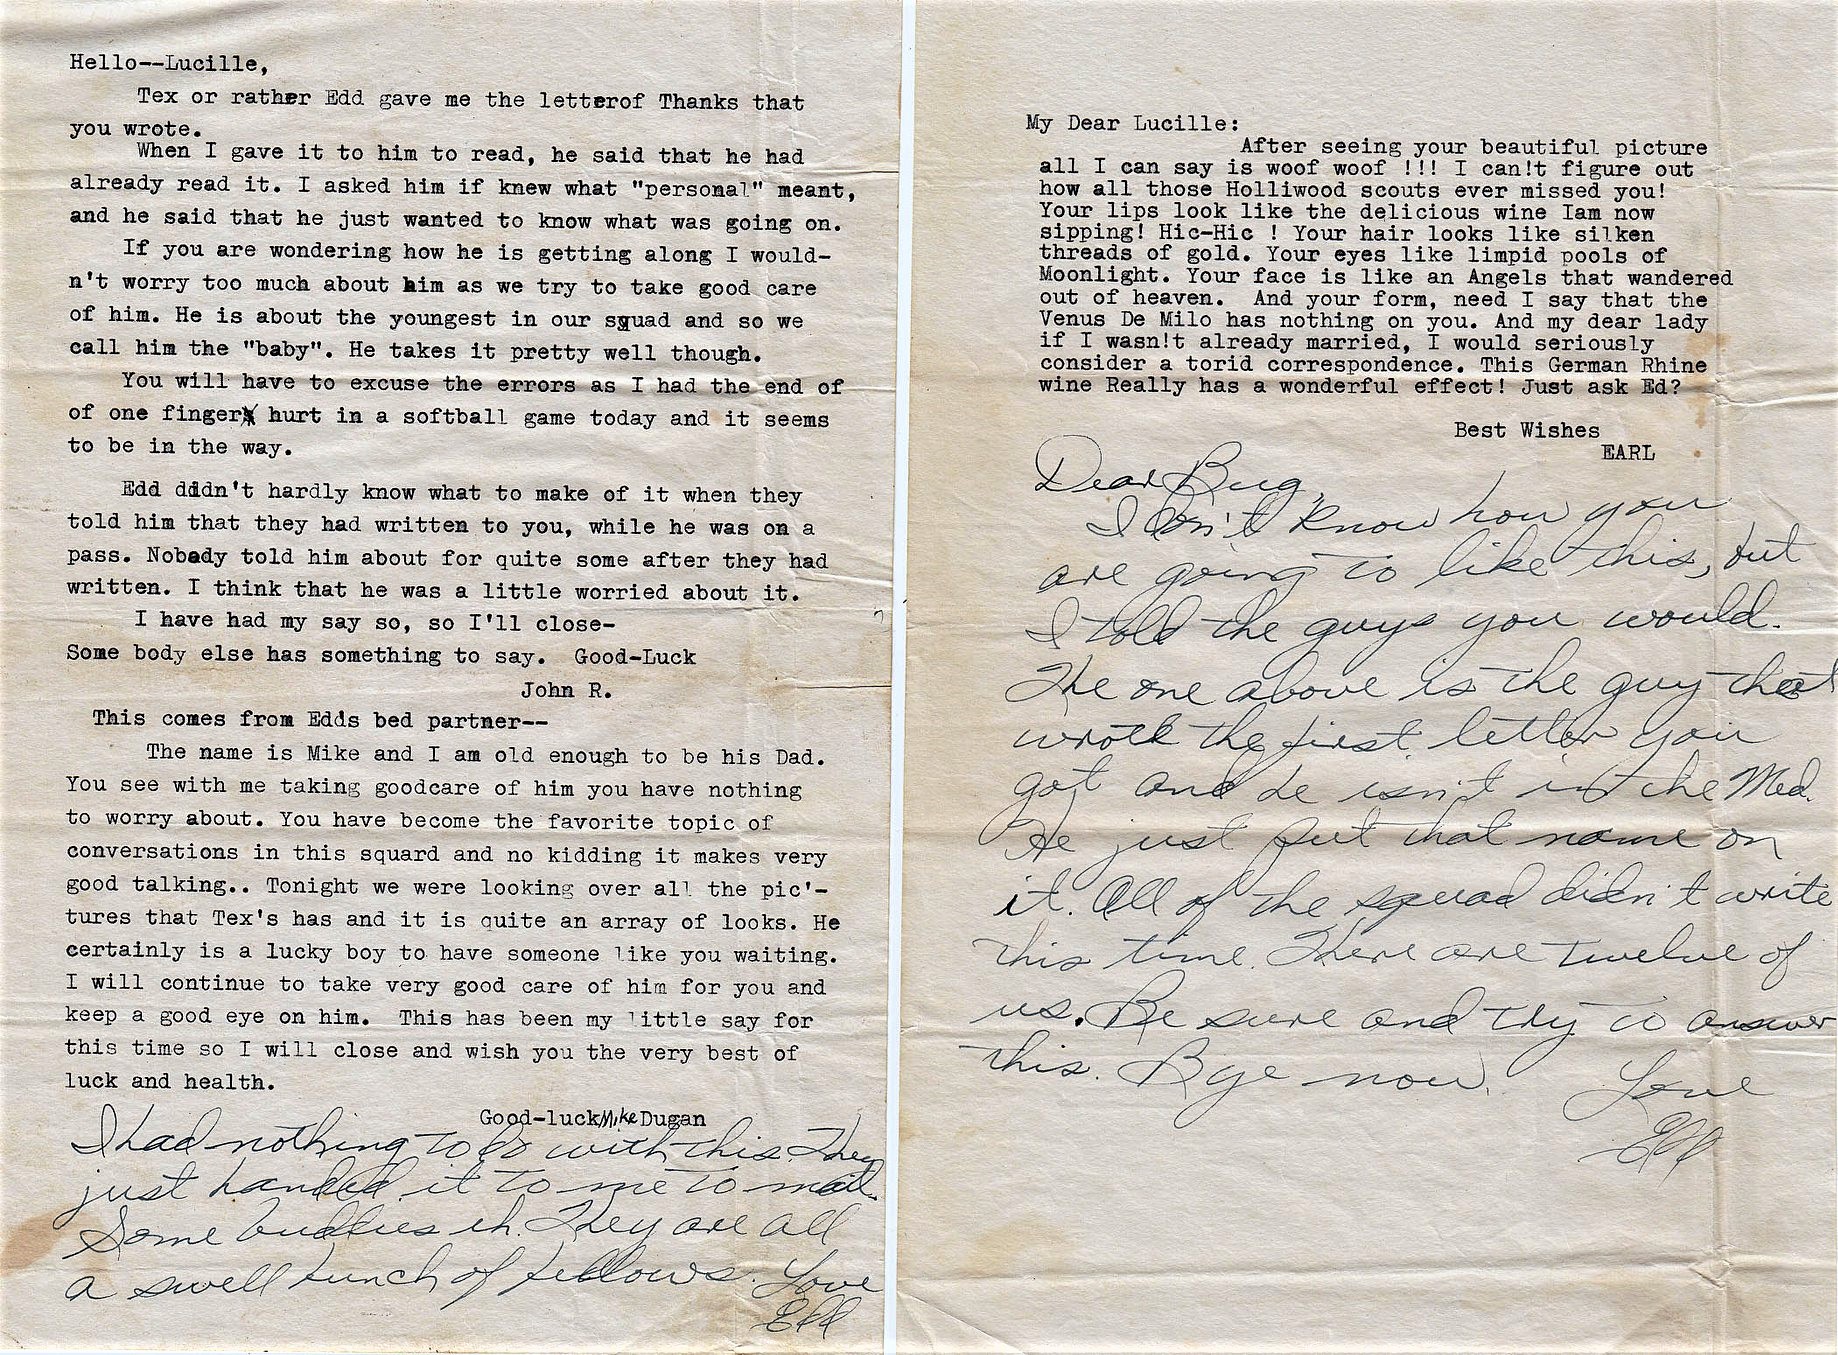 Hello--Lucille,
Tex or rather Edd gave me the letterof Thanks that
you wrote.
When I gave it to him to read, he said that he had
already read it. I asked him if knew what "personal" meant,
and he said that he just wanted to know what was going on.
If you are wondering how he is getting along I would-
n't worry too much about him as we try to take good care
of him. He is about the youngest in our squad and so we
call him the "baby". He takes it pretty well though.
You will have to excuse the errors as I had the end of
of one finger hurt in a softball game today and it seems
to be in the way.
Edd didn't hardly know what to make of it when they
told him that they had written to you, while he was on a
pass. Nobody told him about for quite some after they had
written. I think that he was a little worried about it.
I have had my say so, so I'll close-
Some body else has something to say. Good-Luck
John R.
This comes from Edds bed partner--
The name is Mike and I am old enough to be his Dad.
You see with me taking goodcare of him you have nothing
to worry about. You have become the favorite topic of
conversations in this squard and no kidding it makes very
good talking.. Tonight we were looking over all the pic'-
tures that Tex's has and it is quite an array of looks. He
certainly is a lucky boy to have someone like you waiting.
I will continue to take very good care of him for you and
keep a good eye on him. This has been my little say for
this time so I will close and wish you the very best of
luck and health.
Good-luck Mike Dugan
I had nothing to do with this. They
just handed it to me to mail.
Some buddies eh. They are all
a swell bunch of fellows. Love
Edd
My Dear Lucille:
After seeing your beautiful picture
all I can say is woof woof !!! I can!t figure out
how all those Holliwood scouts ever missed you!
Your lips look like the delicious wine Iam now
sipping! Hic-Hic ! Your hair looks like silken
threads of gold. Your eyes like limpid pools of
Moonlight. Your face is like an Angels that wandered
out of heaven. And your form, need I say that the
Venus De Milo has nothing on you. And my dear lady
if I wasn!t already married, I would seriously
consider a torid correspondence. This German Rhine
wine Really has a wonderful effect! Just ask Ed?
Best Wishes
EARL
Dear Bug,
I don't know how you
are going to like this, but
I told the guys you would.
The one above is the guy that
wrote the first letter you
got and he isn't in the Med.
He just put that name on
it. All of the squad didn't write
this time. There are twelve of
us. Be sure and try to answer
this. Bye now.
Love
Edd